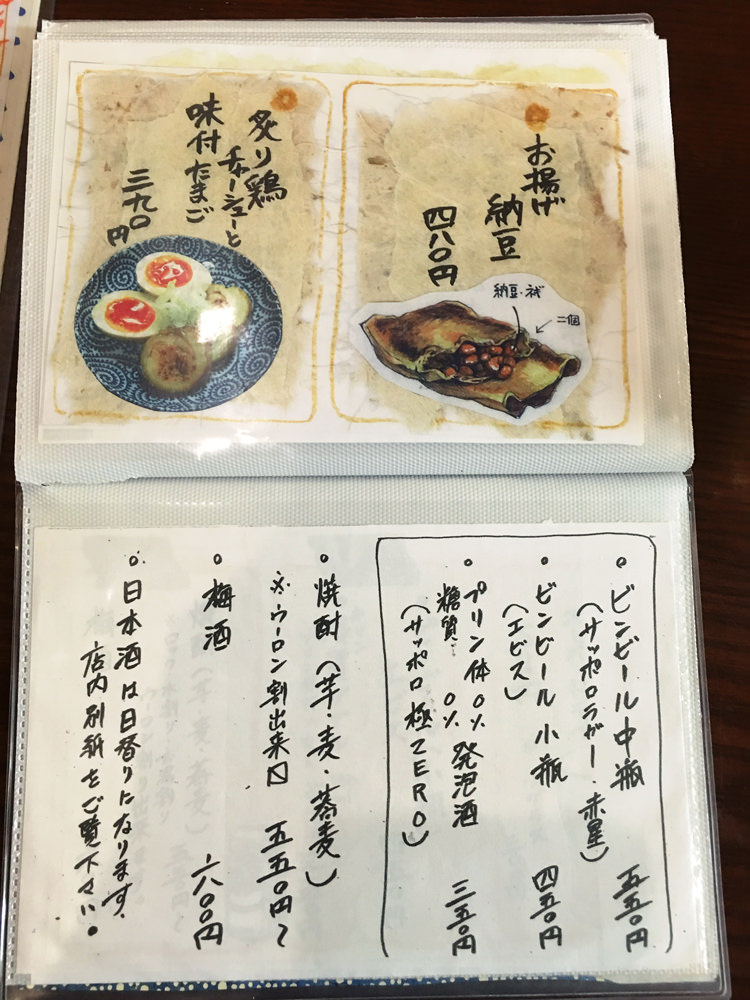 お揚げ
納豆
四八〇円
納豆・ネギ
二個
炙り鶏
チャーシューと
味付たまご
三九〇円
・ビンビール中瓶 五五〇円
(サッポロラガー・赤星)
・ビンビール小瓶 四五〇円
(エビス)
・プリン体0% 発泡酒 三五〇円
糖質〃 0%
(サッポロ極ZERO)
・焼酎(芋・麦・蕎麦)
※ウーロン割出来〼 五五〇円〜
・梅酒 六〇〇円
・日本酒は日替りになります。
店内別紙をご覧下さい。